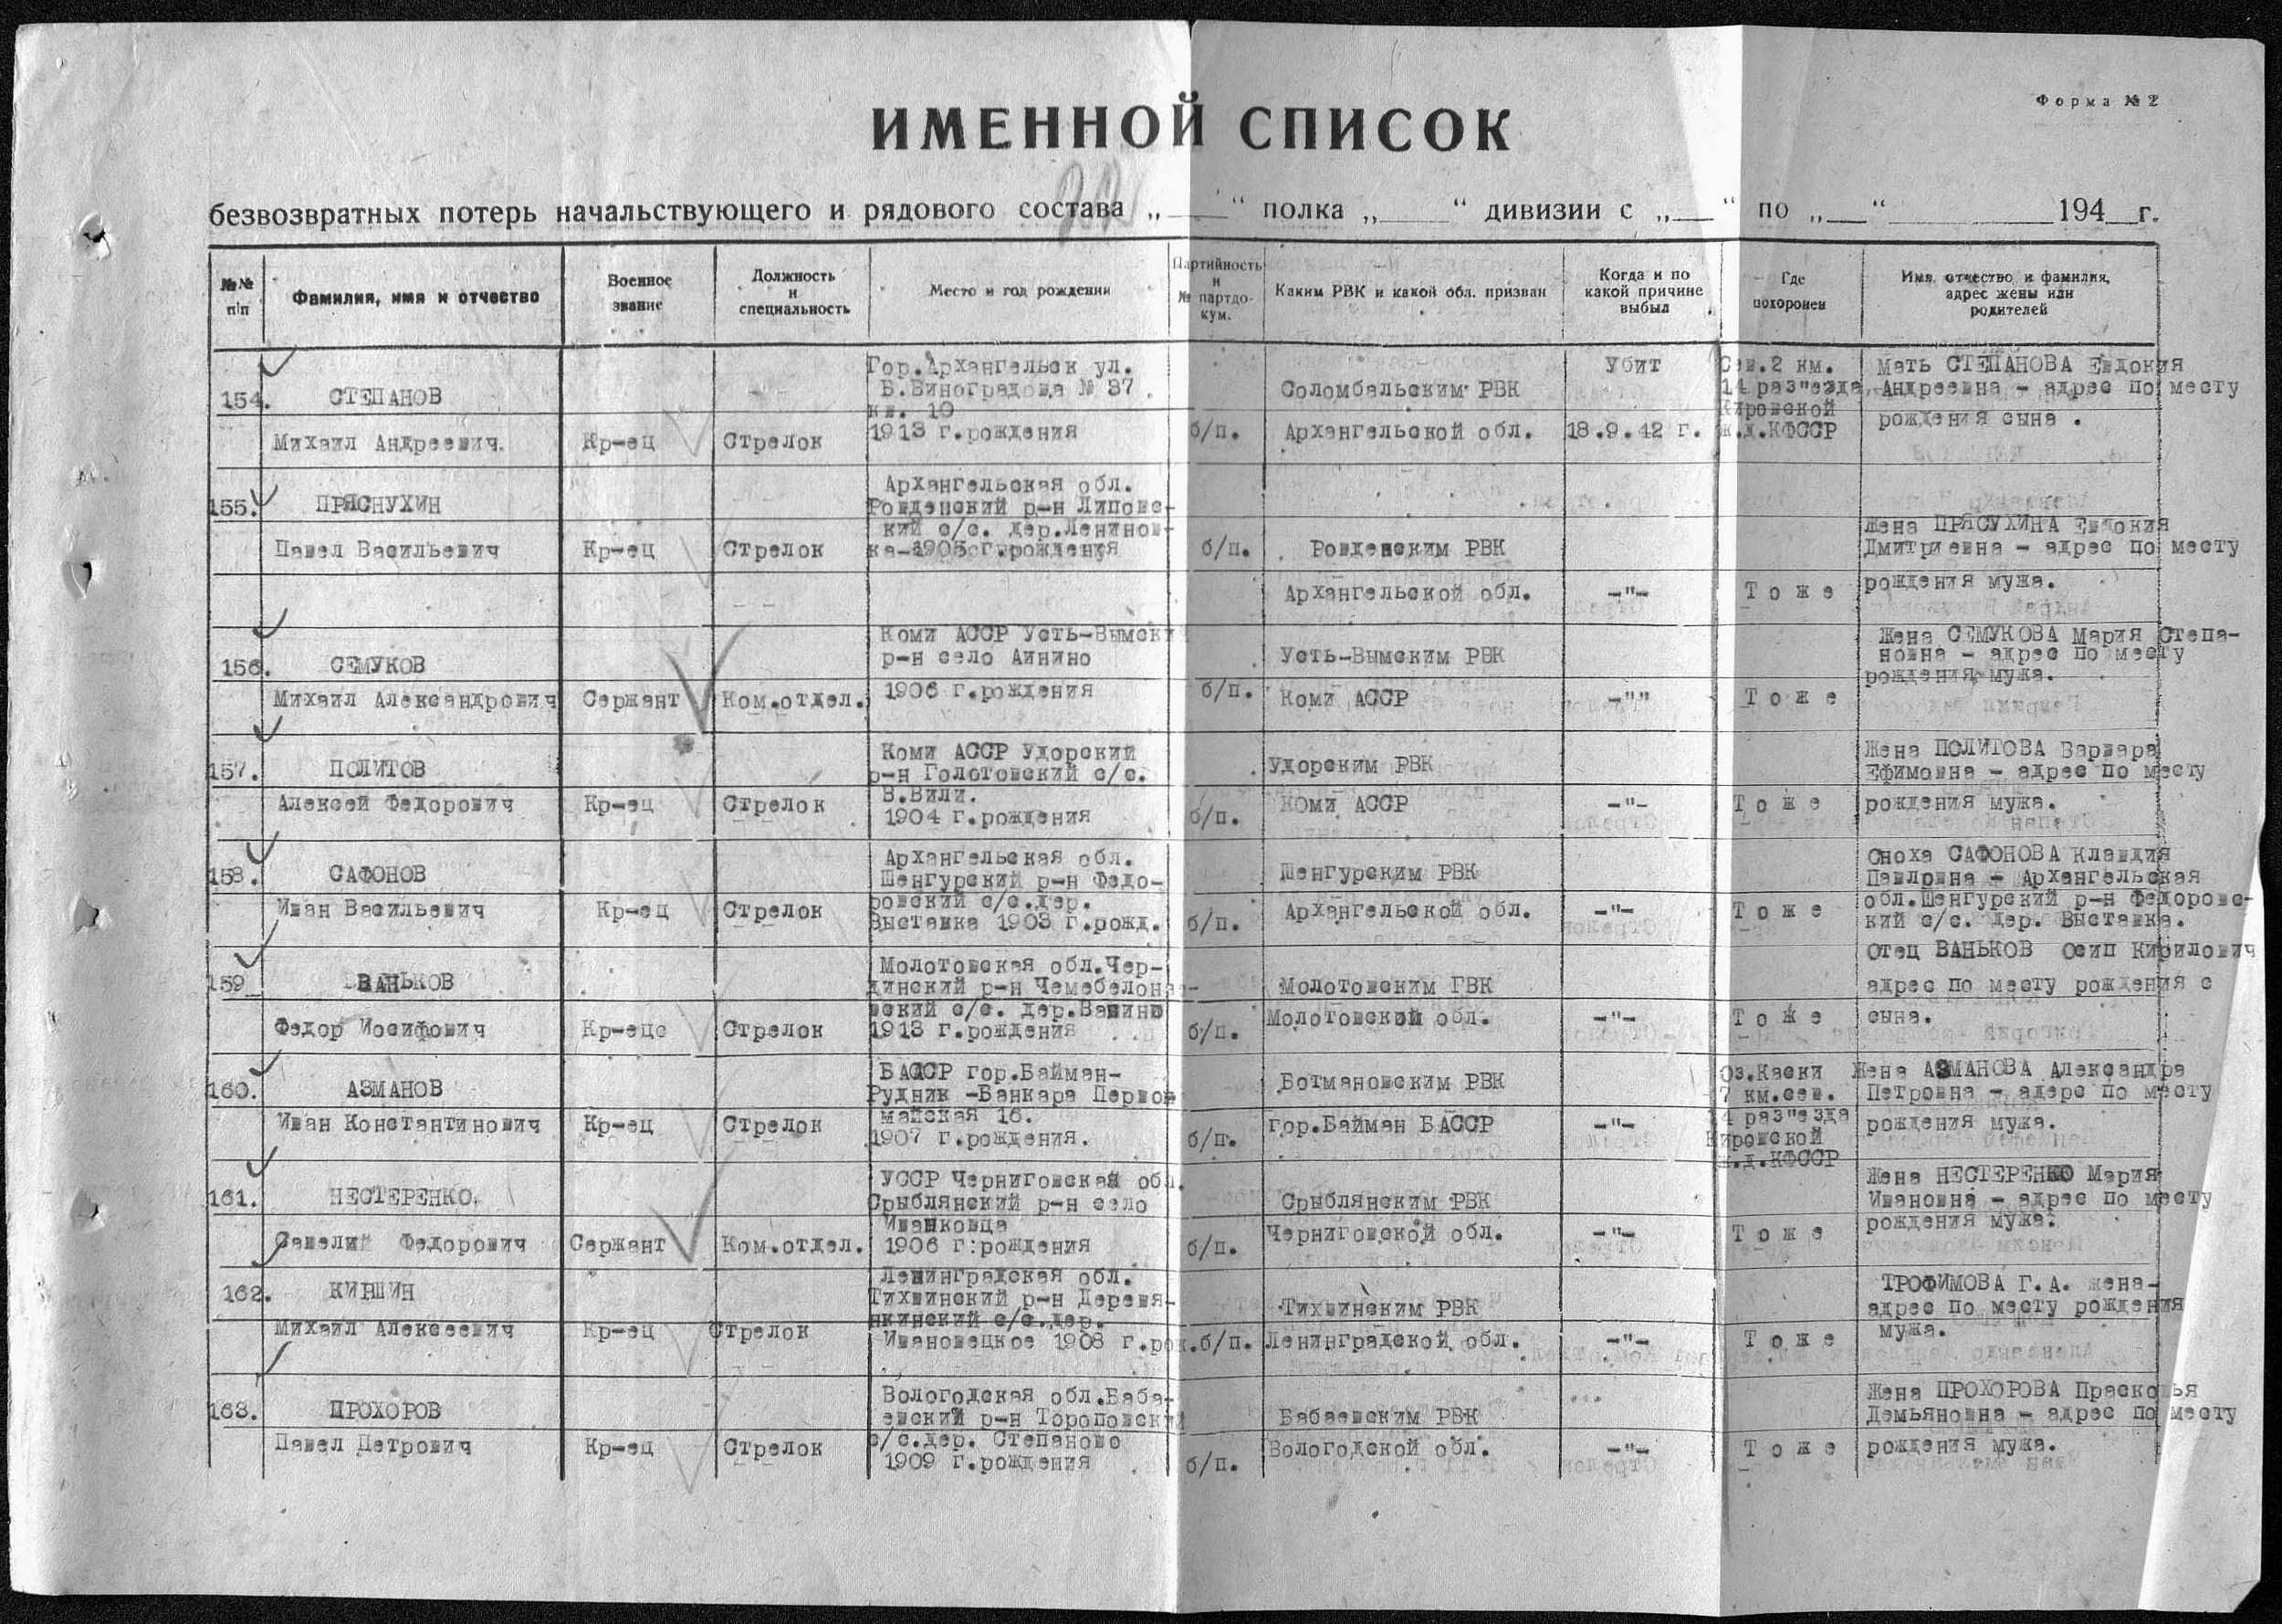 Форма № 2
ИМЕННОЙ СПИСОК
безвозвратных потерь начальствующего и рядового состава „____“ полка „____“ дивизии с „___“ по „___“ ________ 194__г.
№№ п/п
Фамилия, имя и отчество
Военное звание
Должность и специальность
Место и год рождения
Партийность и № партдокум.
Каким РВК и какой обл. призван
Когда и по какой причине выбыл
Где похоронен
Имя, отчество и фамилия, адрес жены или родителей
154. СТЕПАНОВ
Михаил Андреевич.
Кр-ец
Стрелок
Гор.Архангельск ул.
Б.Виноградова № 37
кв. 10
1913 г.рождения
б/п.
Соломбальским РВК
Архангельской обл.
Убит
18.9.42 г.
Сев.2 км.
14 раз"езда
Кировской
ж.д.КФССР
Мать СТЕПАНОВА Евдокия
Андреевна - адрес по месту
рождения сына .
155. ПРЯСНУХИН
Павел Васильевич
Кр-ец
Стрелок
Архангельская обл.
Ровденский р-н Липовс-
кий с/с. дер.Лениновка-
1905 г.рождения
б/п.
Ровденским РВК
Архангельской обл.
-"-
Тоже
Жена ПРЯСУХИНА Евдокия
Дмитриевна - адрес по месту
рождения мужа.
156. СЕМУКОВ
Михаил Александрович
Сержант
Ком.отдел.
Коми АССР Усть-Вымски
р-н село Аинино
1906 г.рождения
б/п.
Усть-Вымским РВК
Коми АССР
-""
Тоже
Жена СЕМУКОВА Мария Степа-
новна - адрес по месту
рождения мужа.
157. ПОЛИТОВ
Алексей Федорович
Кр-ец
Стрелок
Коми АССР Удорский
р-н Голотовский с/с.
В.Вили.
1904 г.рождения
б/п.
Удорским РВК
Коми АССР
-"-
Тоже
Жена ПОЛИТОВА Варвара
Ефимовна - адрес по месту
рождения мужа.
158. САФОНОВ
Иван Васильевич
Кр-ец
Стрелок
Архангельская обл.
Шенгурский р-н Федо-
ровский с/с.дер.
Выставка 1903 г.рожд.
б/п.
Шенгурским РВК
Архангельской обл.
-"-
Тоже
Сноха САФОНОВА Клавдия
Павловна - Архангельская
обл.Шенгурский р-н Федоровс-
кий с/с. дер. Выставка.
159 ВАНЬКОВ
Федор Иосифович
Кр-ецс
Стрелок
Молотовская обл.Чер-
динский р-н Чемебелон
вский с/с. дер.Вавино
1913 г.рождения
б/п.
Молотовским ГВК
Молотовской обл.
-"-
Тоже
Отец ВАНЬКОВ Осип Кирилович
адрес по месту рождения с
сына.
160. АЗМАНОВ
Иван Константинович
Кр-ец
Стрелок
БАССР гор.Байман-
Рудник -Банкара Первом
майская 16.
1907 г.рождения.
б/п.
Ботмановским РВК
гор.Байман БАССР
-"-
Оз.Каски
7 км.сев.
14 раз"езда
Кировской
ж.д.КФССР
Жена АЗМАНОВА Александра
Петровна - адерс по месту
рождения мужа.
161. НЕСТЕРЕНКО.
Савелий Федорович
Сержант
Ком.отдел.
УССР Черниговская обл.
Срыблянский р-н село
Иванковца
1906 г:рождения
б/п.
Срыблянским РВК
Черниговской обл.
-"-
Тоже
Жена НЕСТЕРЕНКО Мария
Ивановна - адрес по месту
рождения мужа.
162. КИРШИН
Михаил Алексеевич
Кр-ец
Стрелок
Ленинградская обл.
Тихвинский р-н Деревя-
нкинский с/с.дер.
Ивановецкое 1908 г.рож.
б/п.
Тихвинским РВК
Ленинградской обл.
-"-
Тоже
ТРОФИМОВА Г.А. жена-
адрес по месту рождения
мужа.
163. ПРОХОРОВ
Павел Петрович
Кр-ец
Стрелок
Вологодская обл.Баба-
евский р-н Тороповский
с/с.дер. Степаново
1909 г.рождения
б/п.
Бабаевским РВК
Вологодской обл.
-"-
Тоже
Жена ПРОХОРОВА Прасковья
Демьяновна - адрес по месту
рождения мужа.